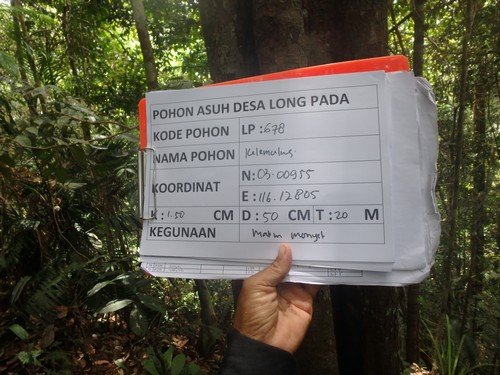 POHON ASUH DESA LONG PADA
KODE POHON LP : 678
NAMA POHON
KOORDINAT N: 03.00955
E : 116.12805
K : 1.50 CM D : 50 CM T : 20 M
KEGUNAAN Makan Monyet